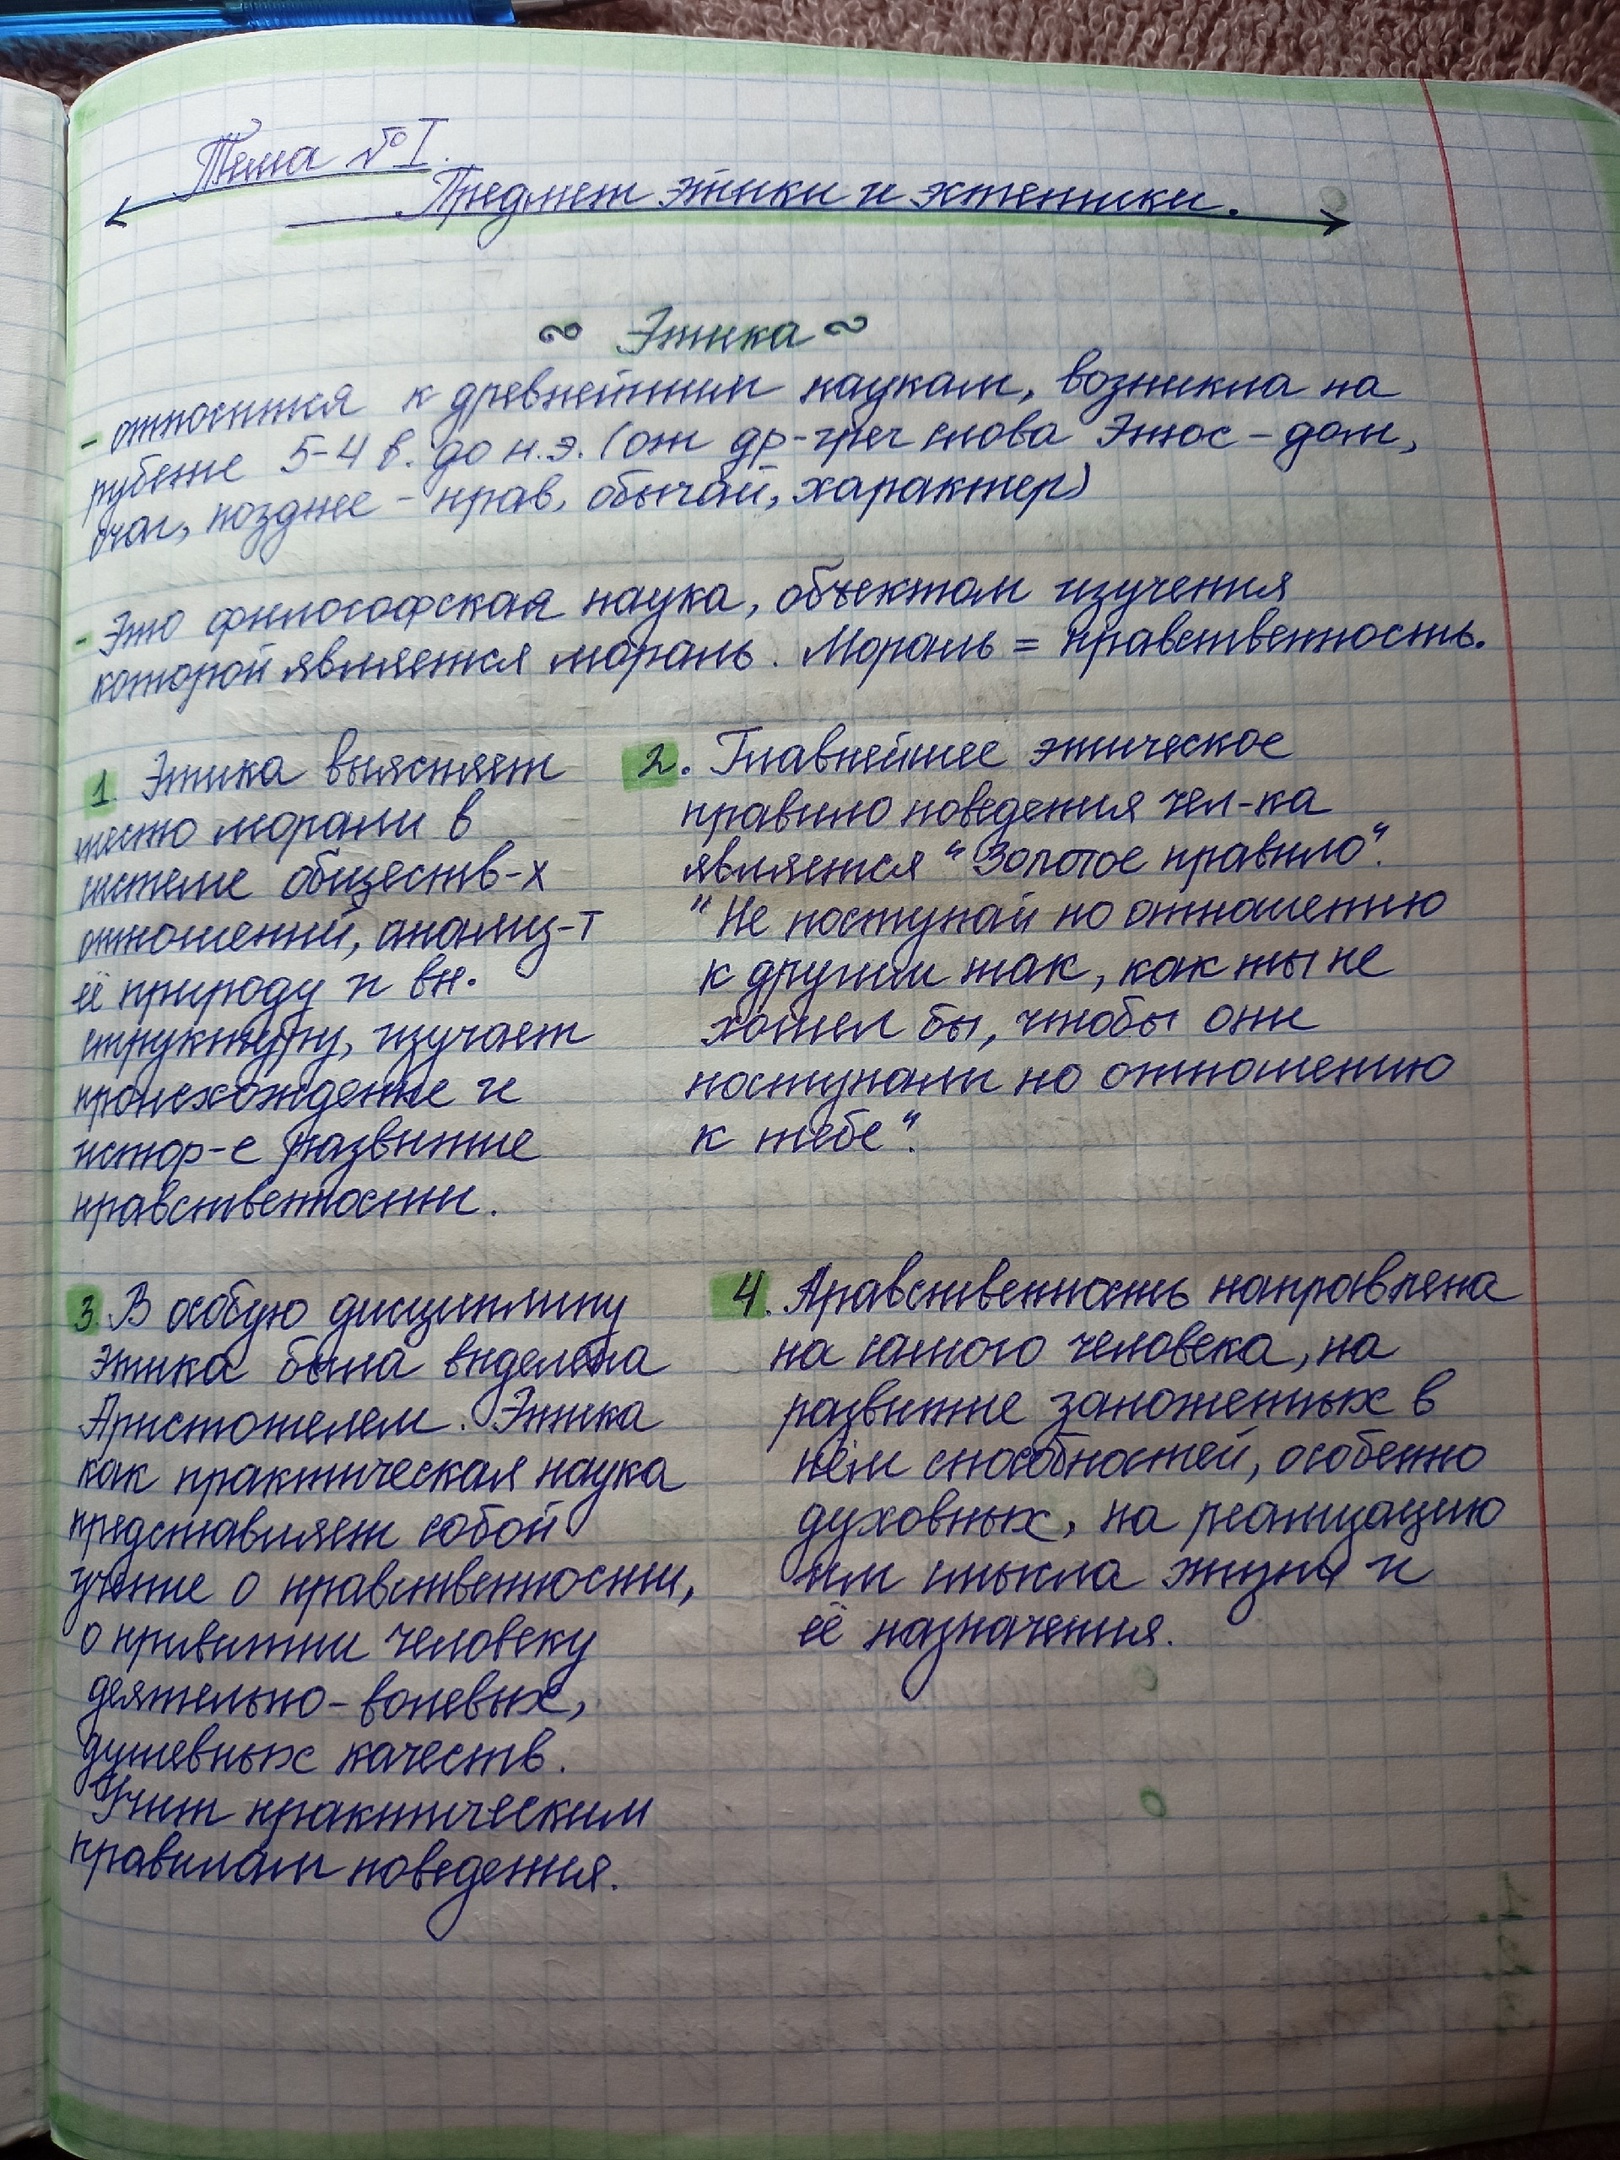 Тема №I.
Предмет этики и эстетики.
Этика
- относится к древнейшим наукам, возникла на
рубеже 5-4 в. до н.э. (от др-греч слова Этос - дом,
очаг, позднее - нрав, обычай, характер)
- Это философская наука, объектом изучения
которой является мораль. Мораль = нравственность.
1. Этика выясняет
место морали в
системе обществ-х
отношений, анализ-т
её природу и вн.
структуру, изучает
происхождение и
истор-е развитие
нравственности.
2. Главнейшее этическое
правило поведения чел-ка
является "Золотое правило".
"Не поступай по отношению
к другим так, как ты не
хотел бы, чтобы они
поступали по отношению
к тебе".
3. В особую дисциплину
этика была выделена
Аристотелем. Этика
как практическая наука
представляет собой
учение о нравственности,
о привитии человеку
деятельно-волевых,
душевных качеств.
Учит практическим
правилам поведения.
4. Нравственность направлена
на самого человека, на
развитие заложенных в
нём способностей, особенно
духовных, на реализацию
им смысла жизни и
её назначения.